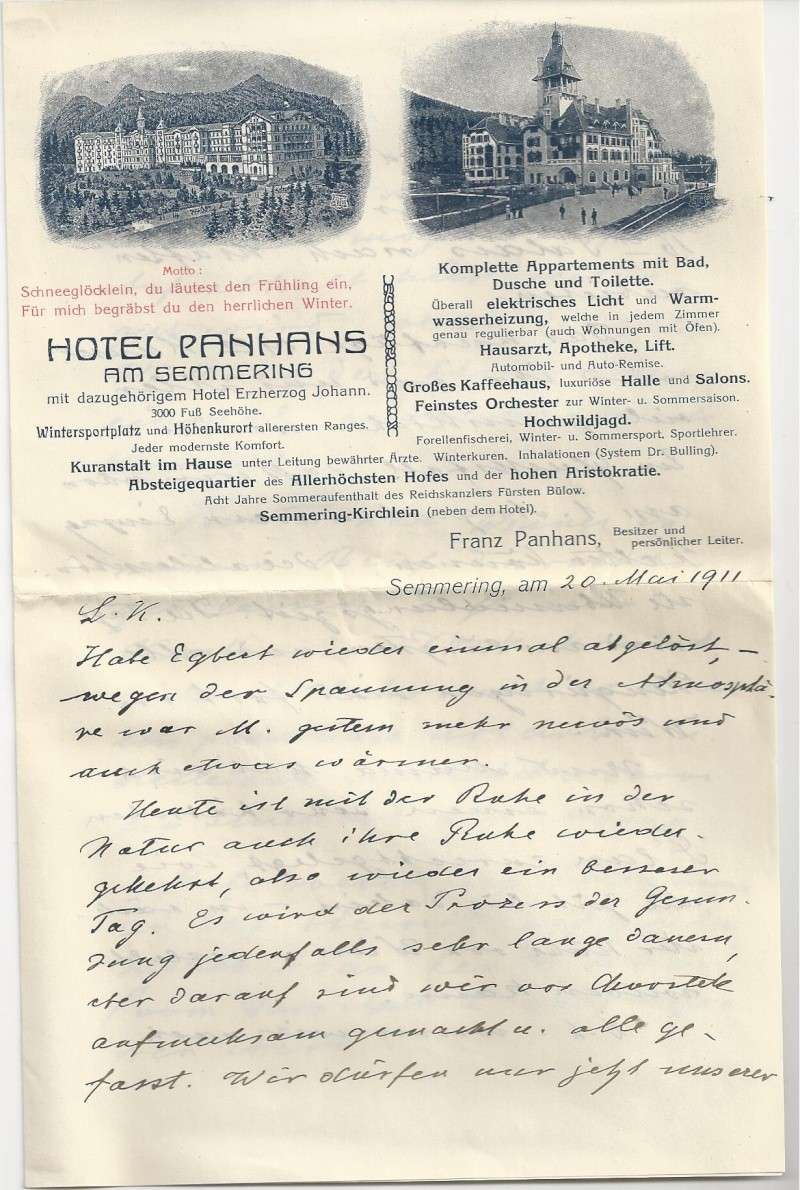 Motto:
Schneeglöcklein, du läutest den Frühling ein,
Für mich begräbst du den herrlichen Winter.
HOTEL PANHANS
AM SEMMERING
mit dazugehörigem Hotel Erzherzog Johann.
3000 Fuß Seehöhe.
Wintersportplatz und Höhenkurort allerersten Ranges.
Jeder modernste Komfort.
Komplette Appartements mit Bad,
Dusche und Toilette.
Überall elektrisches Licht und Warm-
wasserheizung, welche in jedem Zimmer
genau regulierbar (auch Wohnungen mit Öfen).
Hausarzt, Apotheke, Lift.
Automobil- und Auto-Remise.
Großes Kaffeehaus, luxuriöse Halle und Salons.
Feinstes Orchester zur Winter- u. Sommersaison.
Hochwildjagd.
Forellenfischerei, Winter- u. Sommersport, Sportlehrer.
Kuranstalt im Hause unter Leitung bewährter Ärzte. Winterkuren. Inhalationen (System Dr. Bulling).
Absteigequartier des Allerhöchsten Hofes und der hohen Aristokratie.
Acht Jahre Sommeraufenthalt des Reichskanzlers Fürsten Bülow.
Semmering-Kirchlein (neben dem Hotel).
Franz Panhans, Besitzer und
persönlicher Leiter.
Semmering, am 20. Mai 1911
L. K.
Habe Egbert wieder einmal abgelöst, –
wegen der Spannung in der Atmosphä-
re war M. gestern mehr nervös und
auch etwas wärmer.
Heute ist mit der Ruhe in der
Natur auch ihre Ruhe wieder-
gekehrt, also wieder ein besserer
Tag. Es wird der Prozess der Gesun-
dung jedenfalls sehr lange dauern,
aber darauf sind wir von Chvostek
aufmerksam gemacht u. alle ge-
fasst. Wir dürfen nur jetzt unserer